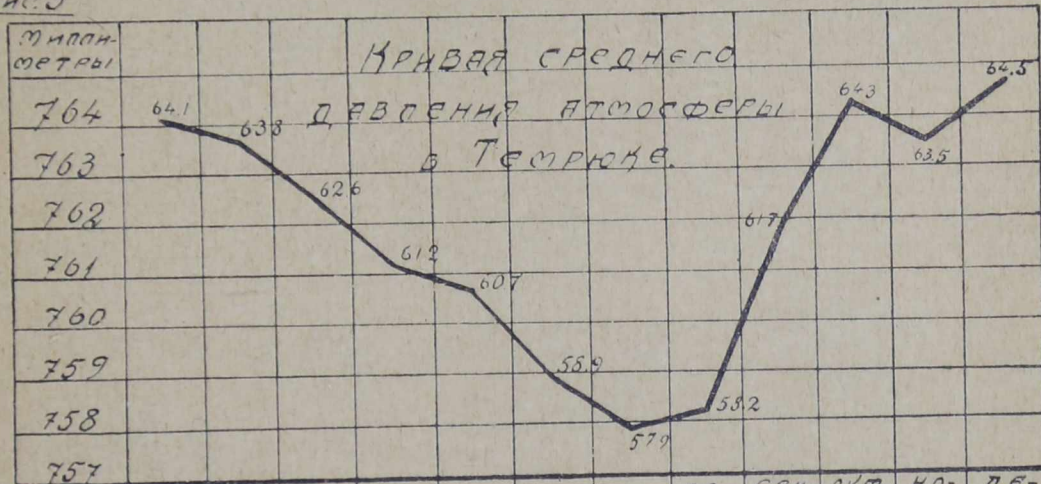 милли-
метры
Кривая среднего
давления атмосферы
в Темрюке.
764
763
762
761
760
759
758
757
64.1
63.8
62.6
61.2
60.7
58.9
57.9
58.2
61.7
64.3
63.5
64.5
окт но- де-